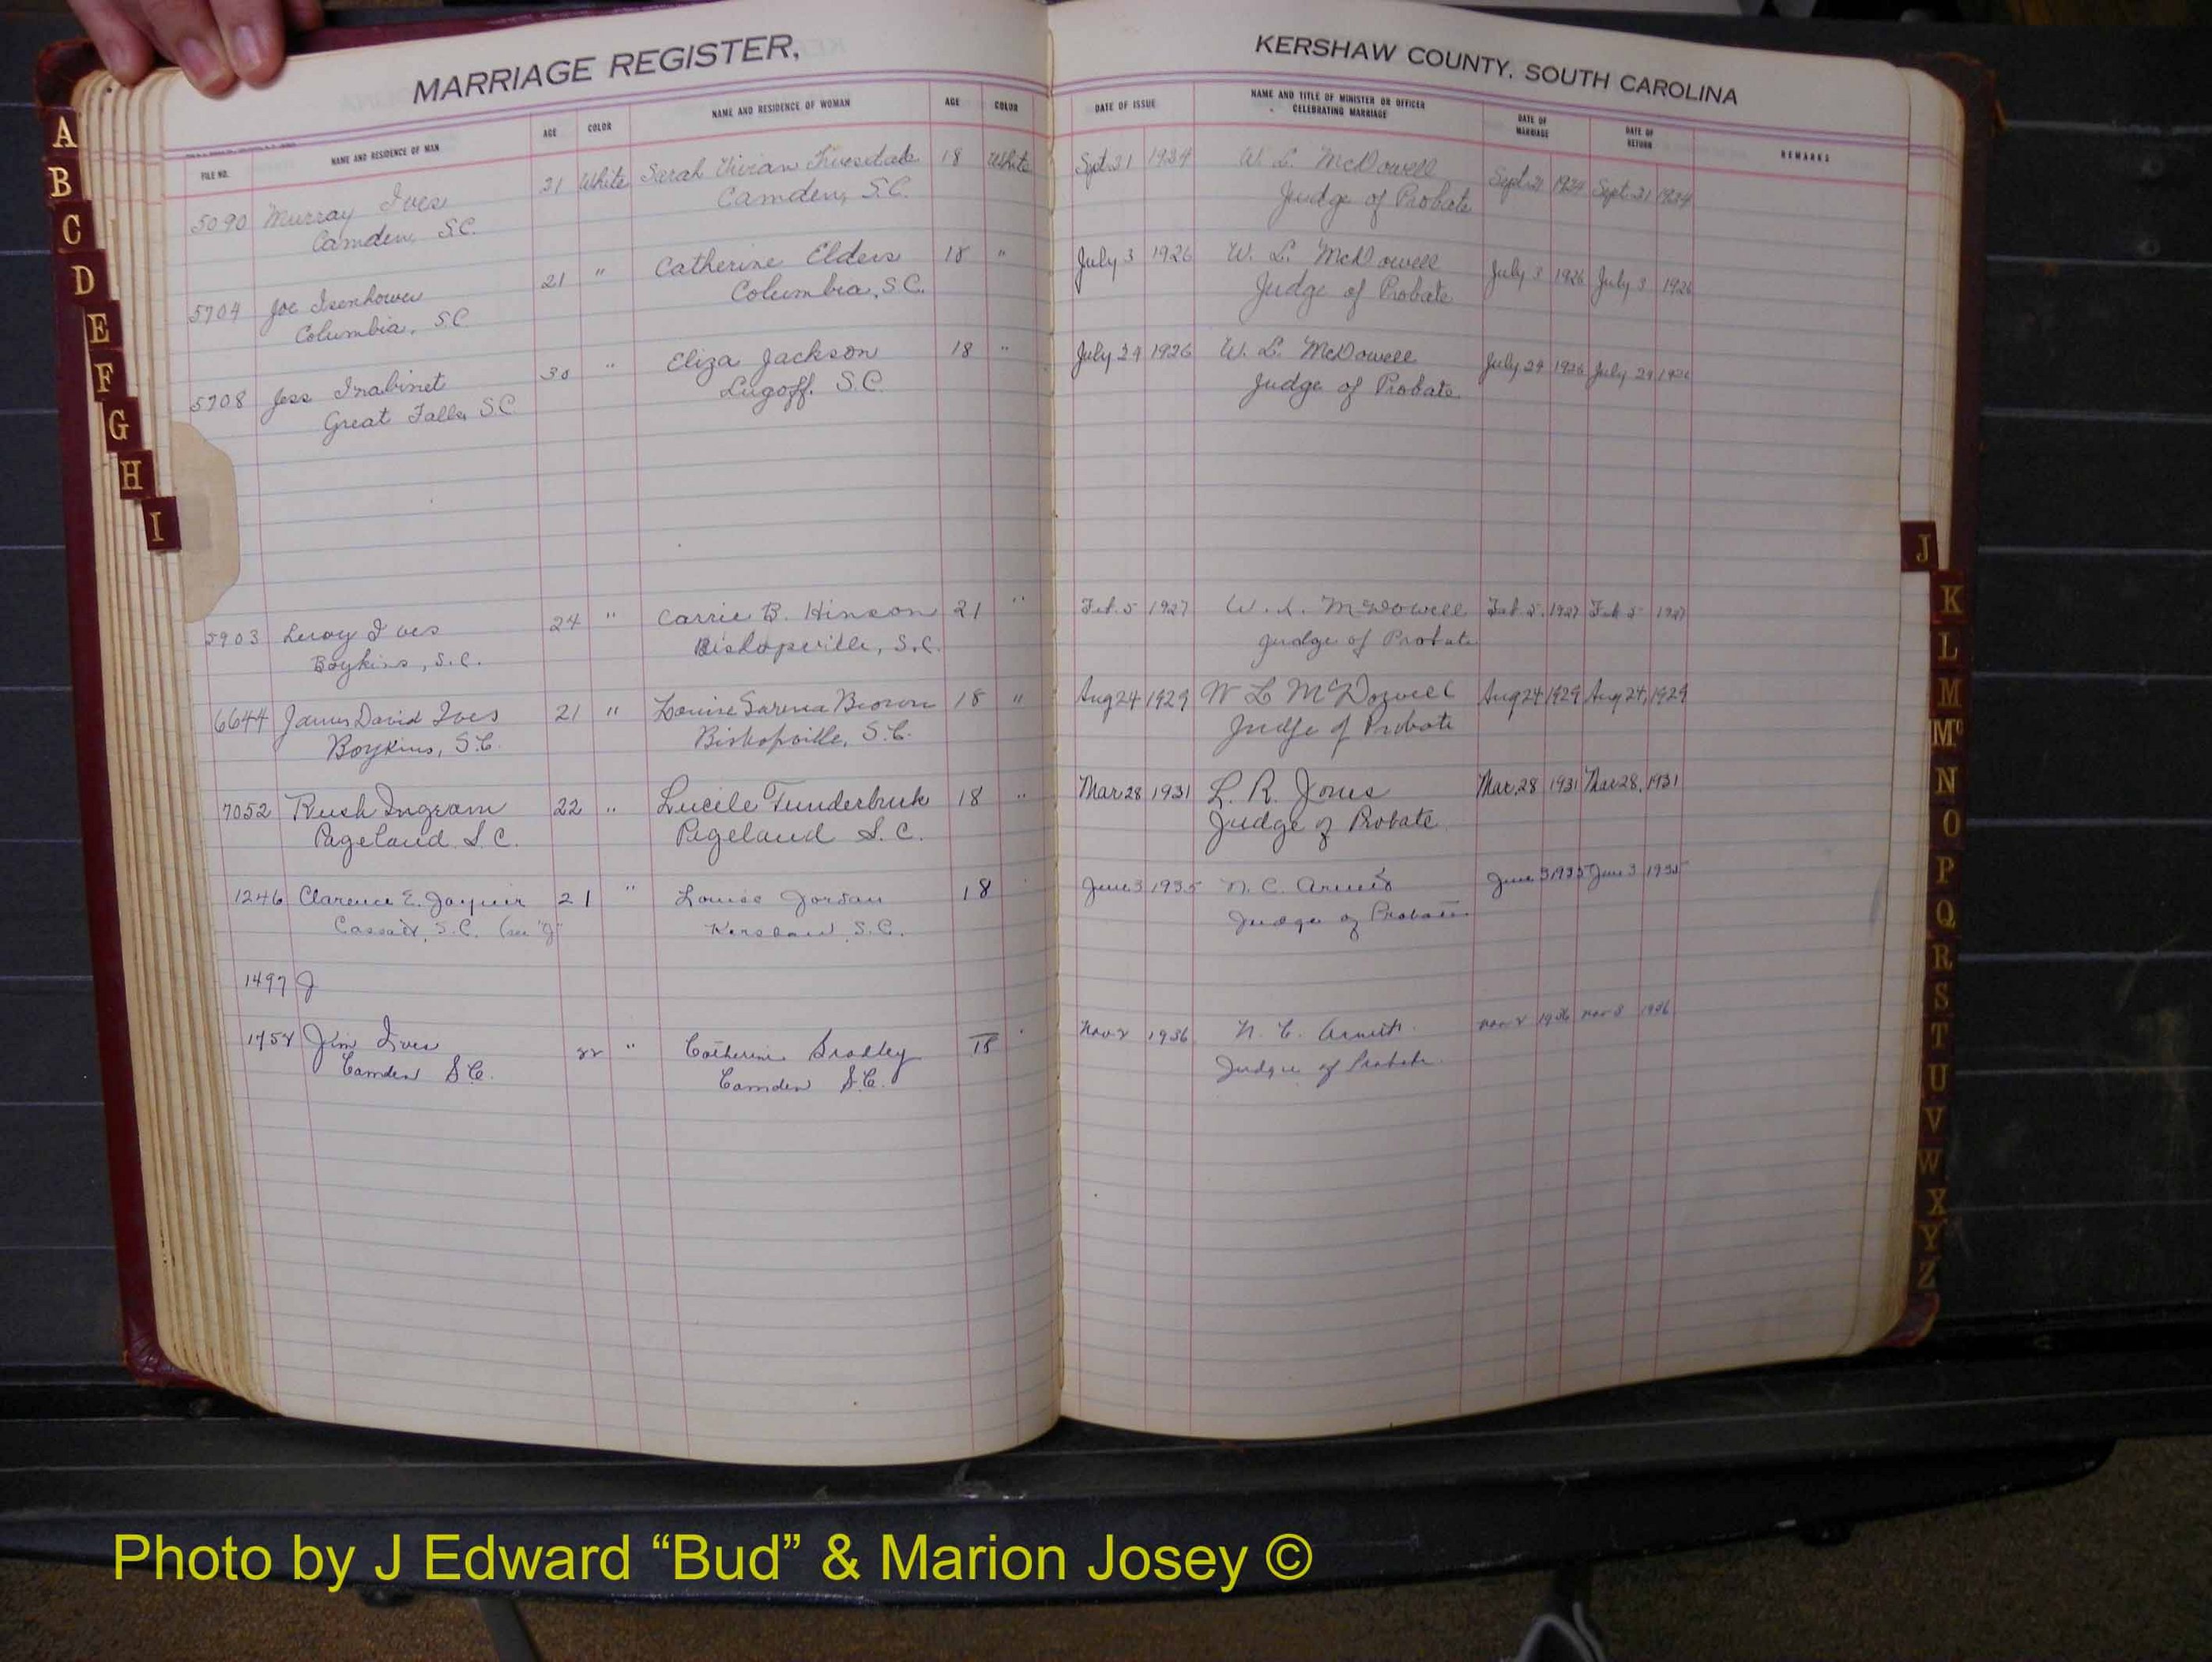 MARRIAGE REGISTER,
KERSHAW COUNTY, SOUTH CAROLINA
FILE NO. NAME AND RESIDENCE OF MAN AGE COLOR NAME AND RESIDENCE OF WOMAN AGE COLOR DATE OF ISSUE NAME AND TITLE OF MINISTER OR OFFICER CELEBRATING MARRIAGE DATE OF MARRIAGE DATE OF RETURN REMARKS
5090 Murray Ives 21 White Sarah Vivian 18 White Sept. 21 1924 W. L. McDowell Sept. 21 1924 Sept. 21 1924
Camden, S.C. Camden, S.C. Judge of Probate
5704 Joe Isenhower 21 " Catherine Elders 18 " July 3 1926 W. L. McDowell July 3 1926 July 3 1926
Columbia, S.C. Columbia, S.C. Judge of Probate
5708 Jess Inabinet 30 " Eliza Jackson 18 " July 24 1926 W. L. McDowell July 24 1926 July 24 1926
Great Falls, S.C. Lugoff, S.C. Judge of Probate
5903 Leroy Ives 24 " Carrie B. Hinson 21 " Feb. 5 1927 W. L. McDowell Feb. 5, 1927 Feb 5 1927
Boykins, S.C. Bishopville, S.C. Judge of Probate
6644 James David Ives 21 " Louise Brown 18 " Aug 24 1929 W L McDowell Aug 24 1929 Aug 24, 1929
Boykins, S.C. Bishopville, S.C. Judge of Probate
7052 Rush Ingram 22 " Lucile Funderburk 18 " Mar 28 1931 L. R. Jones Mar. 28 1931 Mar 28, 1931
Pageland S.C. Pageland S.C. Judge of Probate
1246 Clarence E. 21 " Louise Jordan 18 June 3 1935 N. C. Arnett June 3 1935 June 3 1935
Cassatt, S.C. (see "J" Kershaw, S.C. Judge of Probate
1497 J
Jim Ives 22 " Catherine Bradley 18 Nov 2 1936 N. C. Arnett Nov 1936 Nov 1936
Camden S.C. Camden S.C. Judge of Probate
A
B
C
D
E
F
G
H
I
J
K
L
M
Mc
N
O
P
Q
R
S
T
U
V
W
X
Y
Z
Photo by J Edward “Bud” & Marion Josey ©